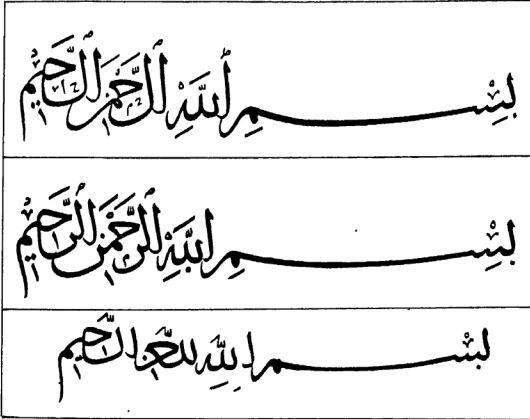 بِسْمِ ٱللَّهِ ٱلرَّحْمَنِ ٱلرَّحِيمِ
بِسْمِ ٱللَّهِ ٱلرَّحْمَنِ ٱلرَّحِيمِ
بسْم اللهِ الرَّحمن الرَّحيم